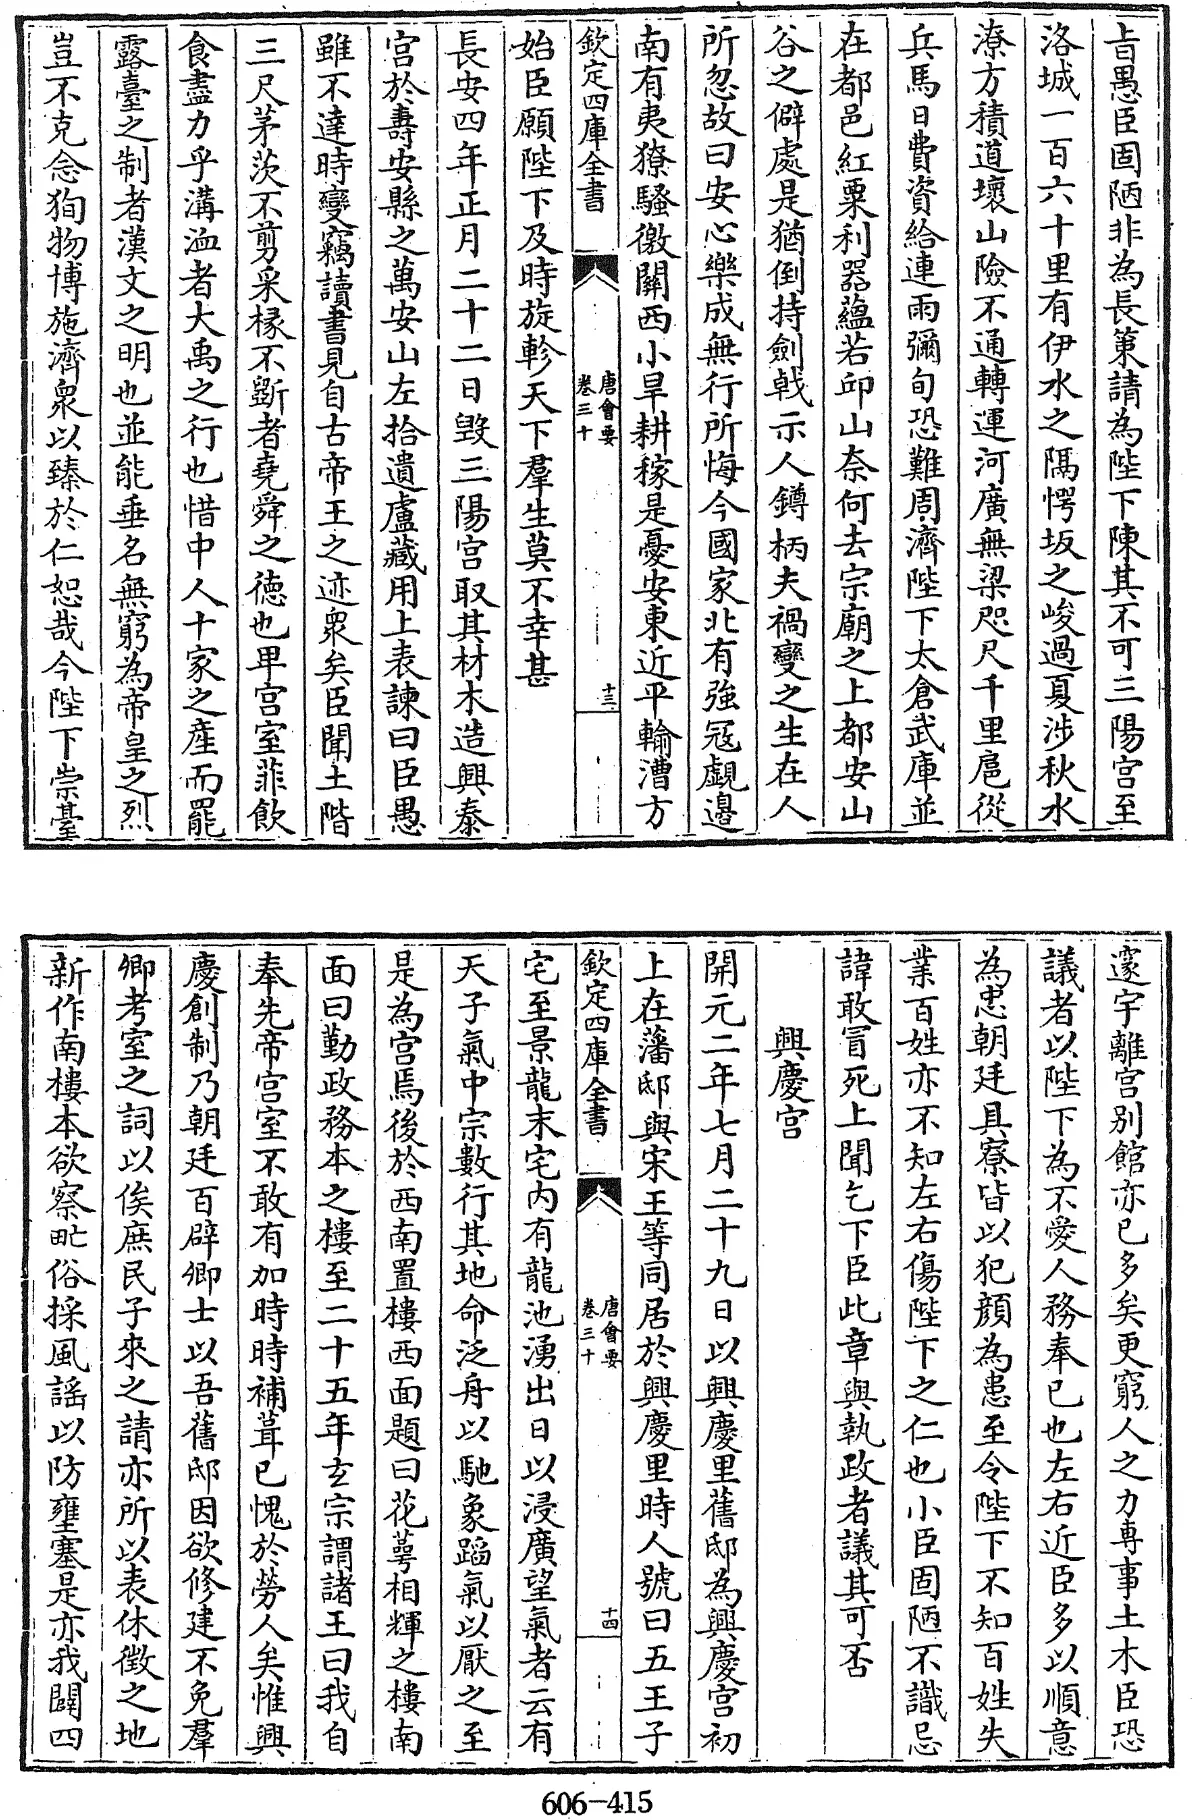 旨愚臣固陋非為長策請為陛下陳其不可三陽宫至
洛城一百六十里有伊水之隅愕坂之峻過夏涉秋水
潦方積道壞山險不通轉運河廣無梁咫尺千里扈從
兵馬日費資給連雨彌旬恐難周濟陛下太倉武庫並
在都邑紅粟利器蘊若邱山奈何去宗廟之上都安山
谷之僻處是猶倒持劍戟示人鐏柄夫禍變之生在人
所忽故曰安心樂成無行所悔今國家北有強冦覷邉
南有夷獠騷徼關西小旱耕稼是憂安東近平輸漕方
欽定四庫全書
唐會要
卷三十
十三
始臣願陛下及時旋軫天下羣生莫不幸甚
長安四年正月二十二日毀三陽宫取其材木造興泰
宫於壽安縣之萬安山左拾遺盧藏用上表諫曰臣愚
雖不達時變竊讀書見自古帝王之迹衆矣臣聞土階
三尺茅茨不剪采椽不斵者堯舜之德也卑宫室菲飲
食盡力乎溝洫者大禹之行也惜中人十家之產而罷
露臺之制者漢文之明也並能垂名無窮為帝皇之烈
豈不克念狥物博施濟衆以臻於仁恕哉今陛下崇臺
邃宇離宫别館亦已多矣更窮人之力專事土木臣恐
議者以陛下為不愛人務奉已也左右近臣多以順意
為忠朝廷具寮皆以犯顔為患至令陛下不知百姓失
業百姓亦不知左右傷陛下之仁也小臣固陋不識忌
諱敢冒死上聞乞下臣此章與執政者議其可否
興慶宫
開元二年七月二十九日以興慶里舊邸為興慶宫初
上在藩邸與宋王等同居於興慶里時人號曰五王子
欽定四庫全書
唐會要
卷三十
十四
宅至景龍末宅内有龍池湧出日以浸廣望氣者云有
天子氣中宗數行其地命泛舟以馳象蹈氣以厭之至
是為宫焉後於西南置樓西面題曰花萼相輝之樓南
面曰勤政務本之樓至二十五年玄宗謂諸王曰我自
奉先帝宫室不敢有加時時補葺已愧於勞人矣惟興
慶創制乃朝廷百辟卿士以吾舊邸因欲修建不免羣
卿考室之詞以俟庶民子來之請亦所以表休徵之地
新作南樓本欲察甿俗採風謡以防壅塞是亦我闢四
606-415